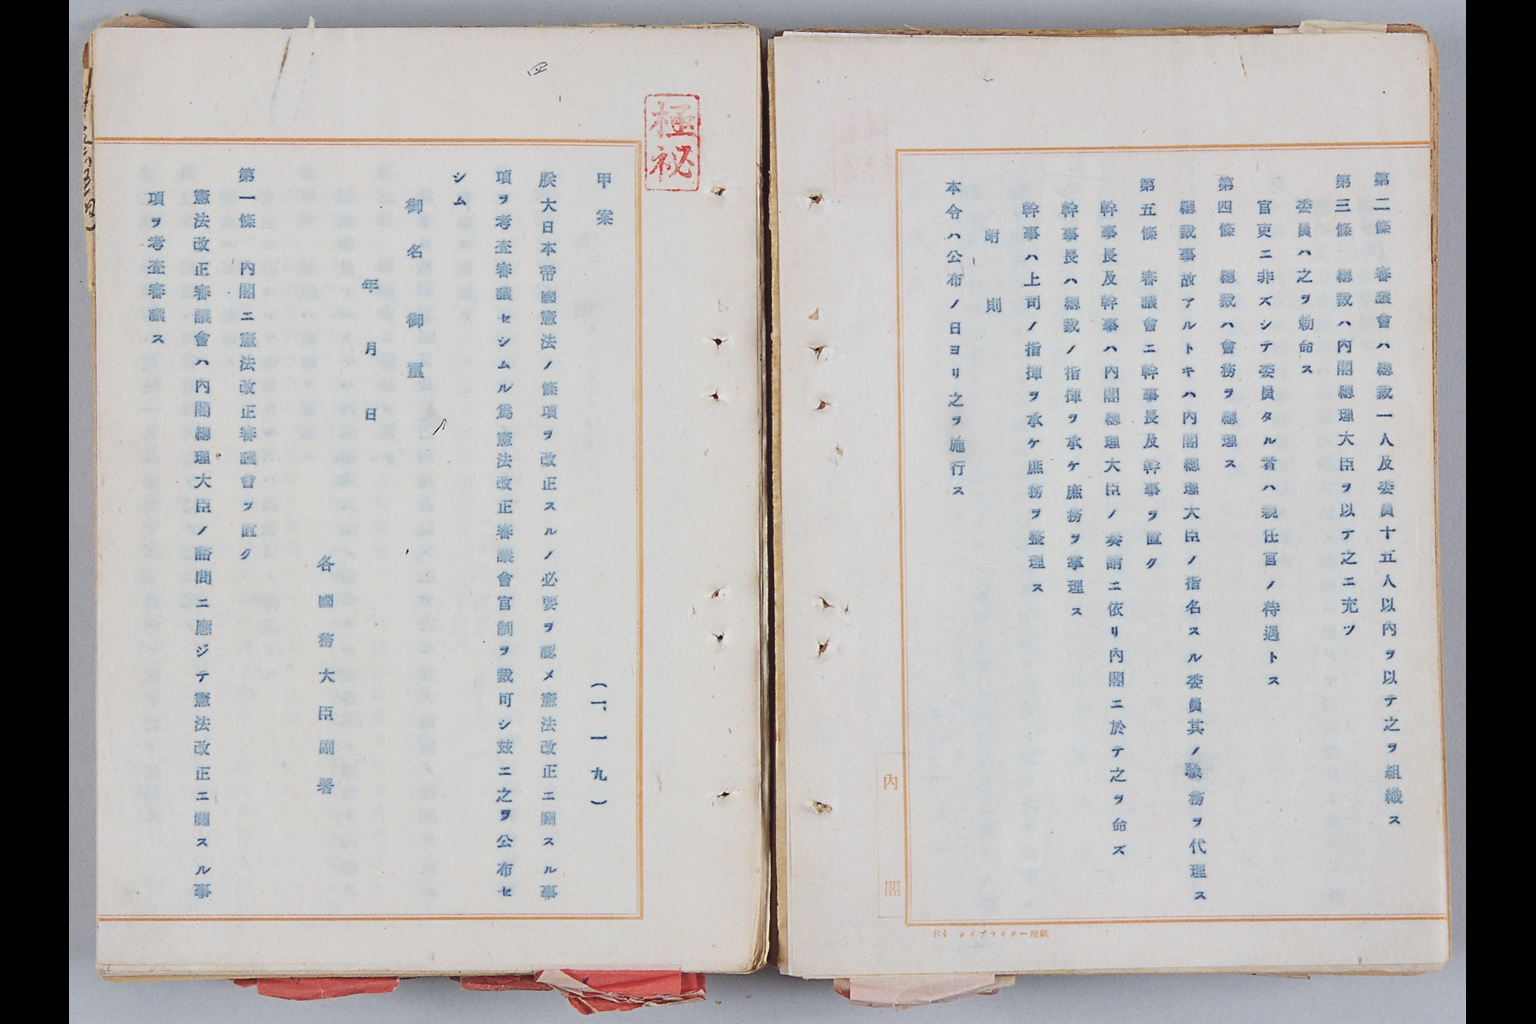 第二條　審議會ハ總裁一人及委員十五人以內ヲ以テ之ヲ組織ス
第三條　總裁ハ內閣總理大臣ヲ以テ之ニ充ツ
委員ハ之ヲ勅命ス
官吏ニ非ズシテ委員タル者ハ親任官ノ待遇トス
第四條　總裁ハ會務ヲ總理ス
總裁事故アルトキハ內閣總理大臣ノ指名スル委員其ノ職務ヲ代理ス
第五條　審議會ニ幹事長及幹事ヲ置ク
幹事長及幹事ハ內閣總理大臣ノ奏請ニ依リ內閣ニ於テ之ヲ命ズ
幹事長ハ總裁ノ指揮ヲ承ケ庶務ヲ掌理ス
幹事ハ上司ノ指揮ヲ承ケ庶務ヲ整理ス
附則
本令ハ公布ノ日ヨリ之ヲ施行ス
內閣
B4　タイプライター用紙
極秘
四
甲案　（一、一九）
朕大日本帝國憲法ノ條項ヲ改正スルノ必要ヲ認メ憲法改正ニ關スル事
項ヲ考査審議セシムル爲憲法改正審議會官制ヲ裁可シ玆ニ之ヲ公布セ
シム
御名御璽
年月日
各國務大臣副署
第一條　內閣ニ憲法改正審議會ヲ置ク
憲法改正審議會ハ內閣總理大臣ノ諮問ニ應ジテ憲法改正ニ關スル事
項ヲ考査審議ス